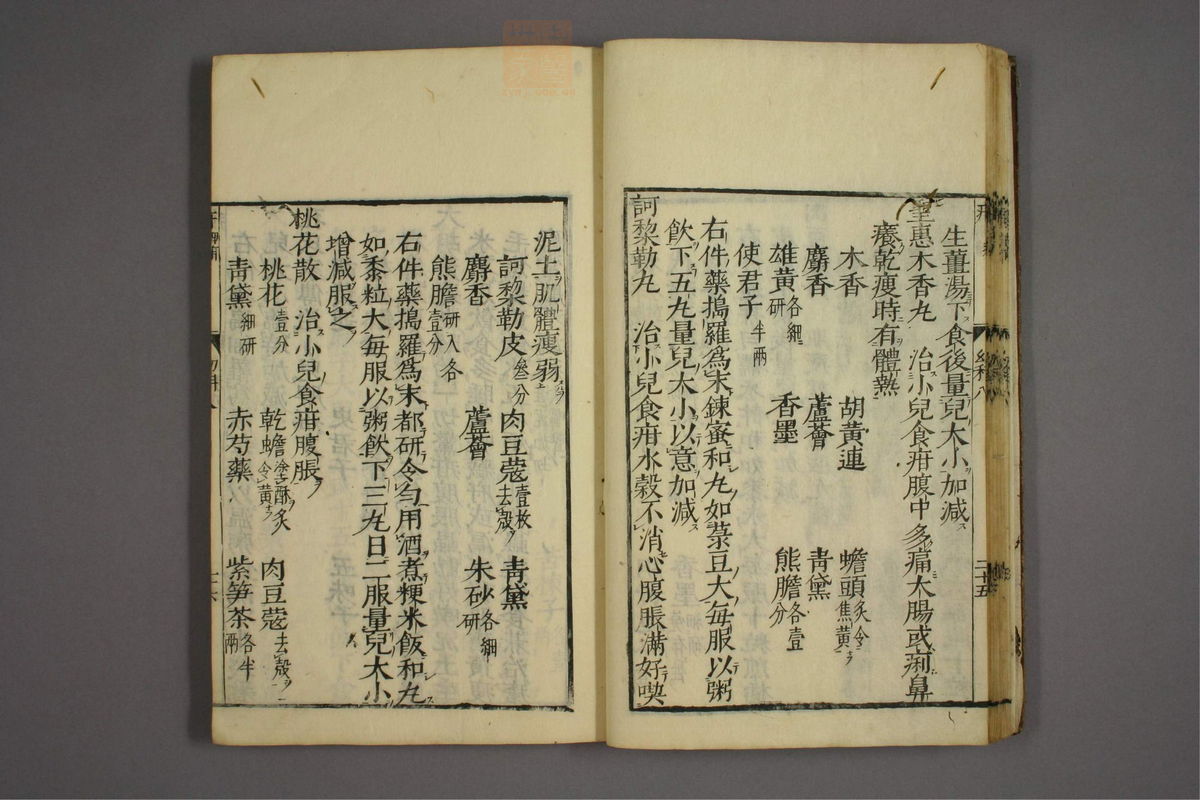 生薑湯下食後量兒大小加減
聖惠木香丸 治小兒食疳腹中多痛大腸或痢鼻
癢乾瘦時有體熱
木香 胡黃連 蟾頭炙令焦黃
麝香 蘆薈 青黛
雄黃各細研 香墨 熊膽各壹分
使君子半兩
右件藥搗羅爲末鍊蜜和丸如菉豆大每服以粥
飲下五丸量兒大小以意加減
訶黎勒丸 治小兒食疳水穀不消心腹脹滿好喫
泥土肌體瘦弱
訶黎勒皮叄分 肉豆蔻壹枚去殼 青黛
麝香 蘆薈 朱砂各細研
熊膽研入各壹分
右件藥搗羅爲末都研令勻用酒煮粳米飯和丸
如黍粒大每服以粥飲下三丸日二服量兒大小
增減服之
桃花散 治小兒食疳腹脹
桃花壹分 乾蟾塗酥炙令黃 肉豆蔻去殼
青黛細研 赤芍藥 紫笋茶各半兩